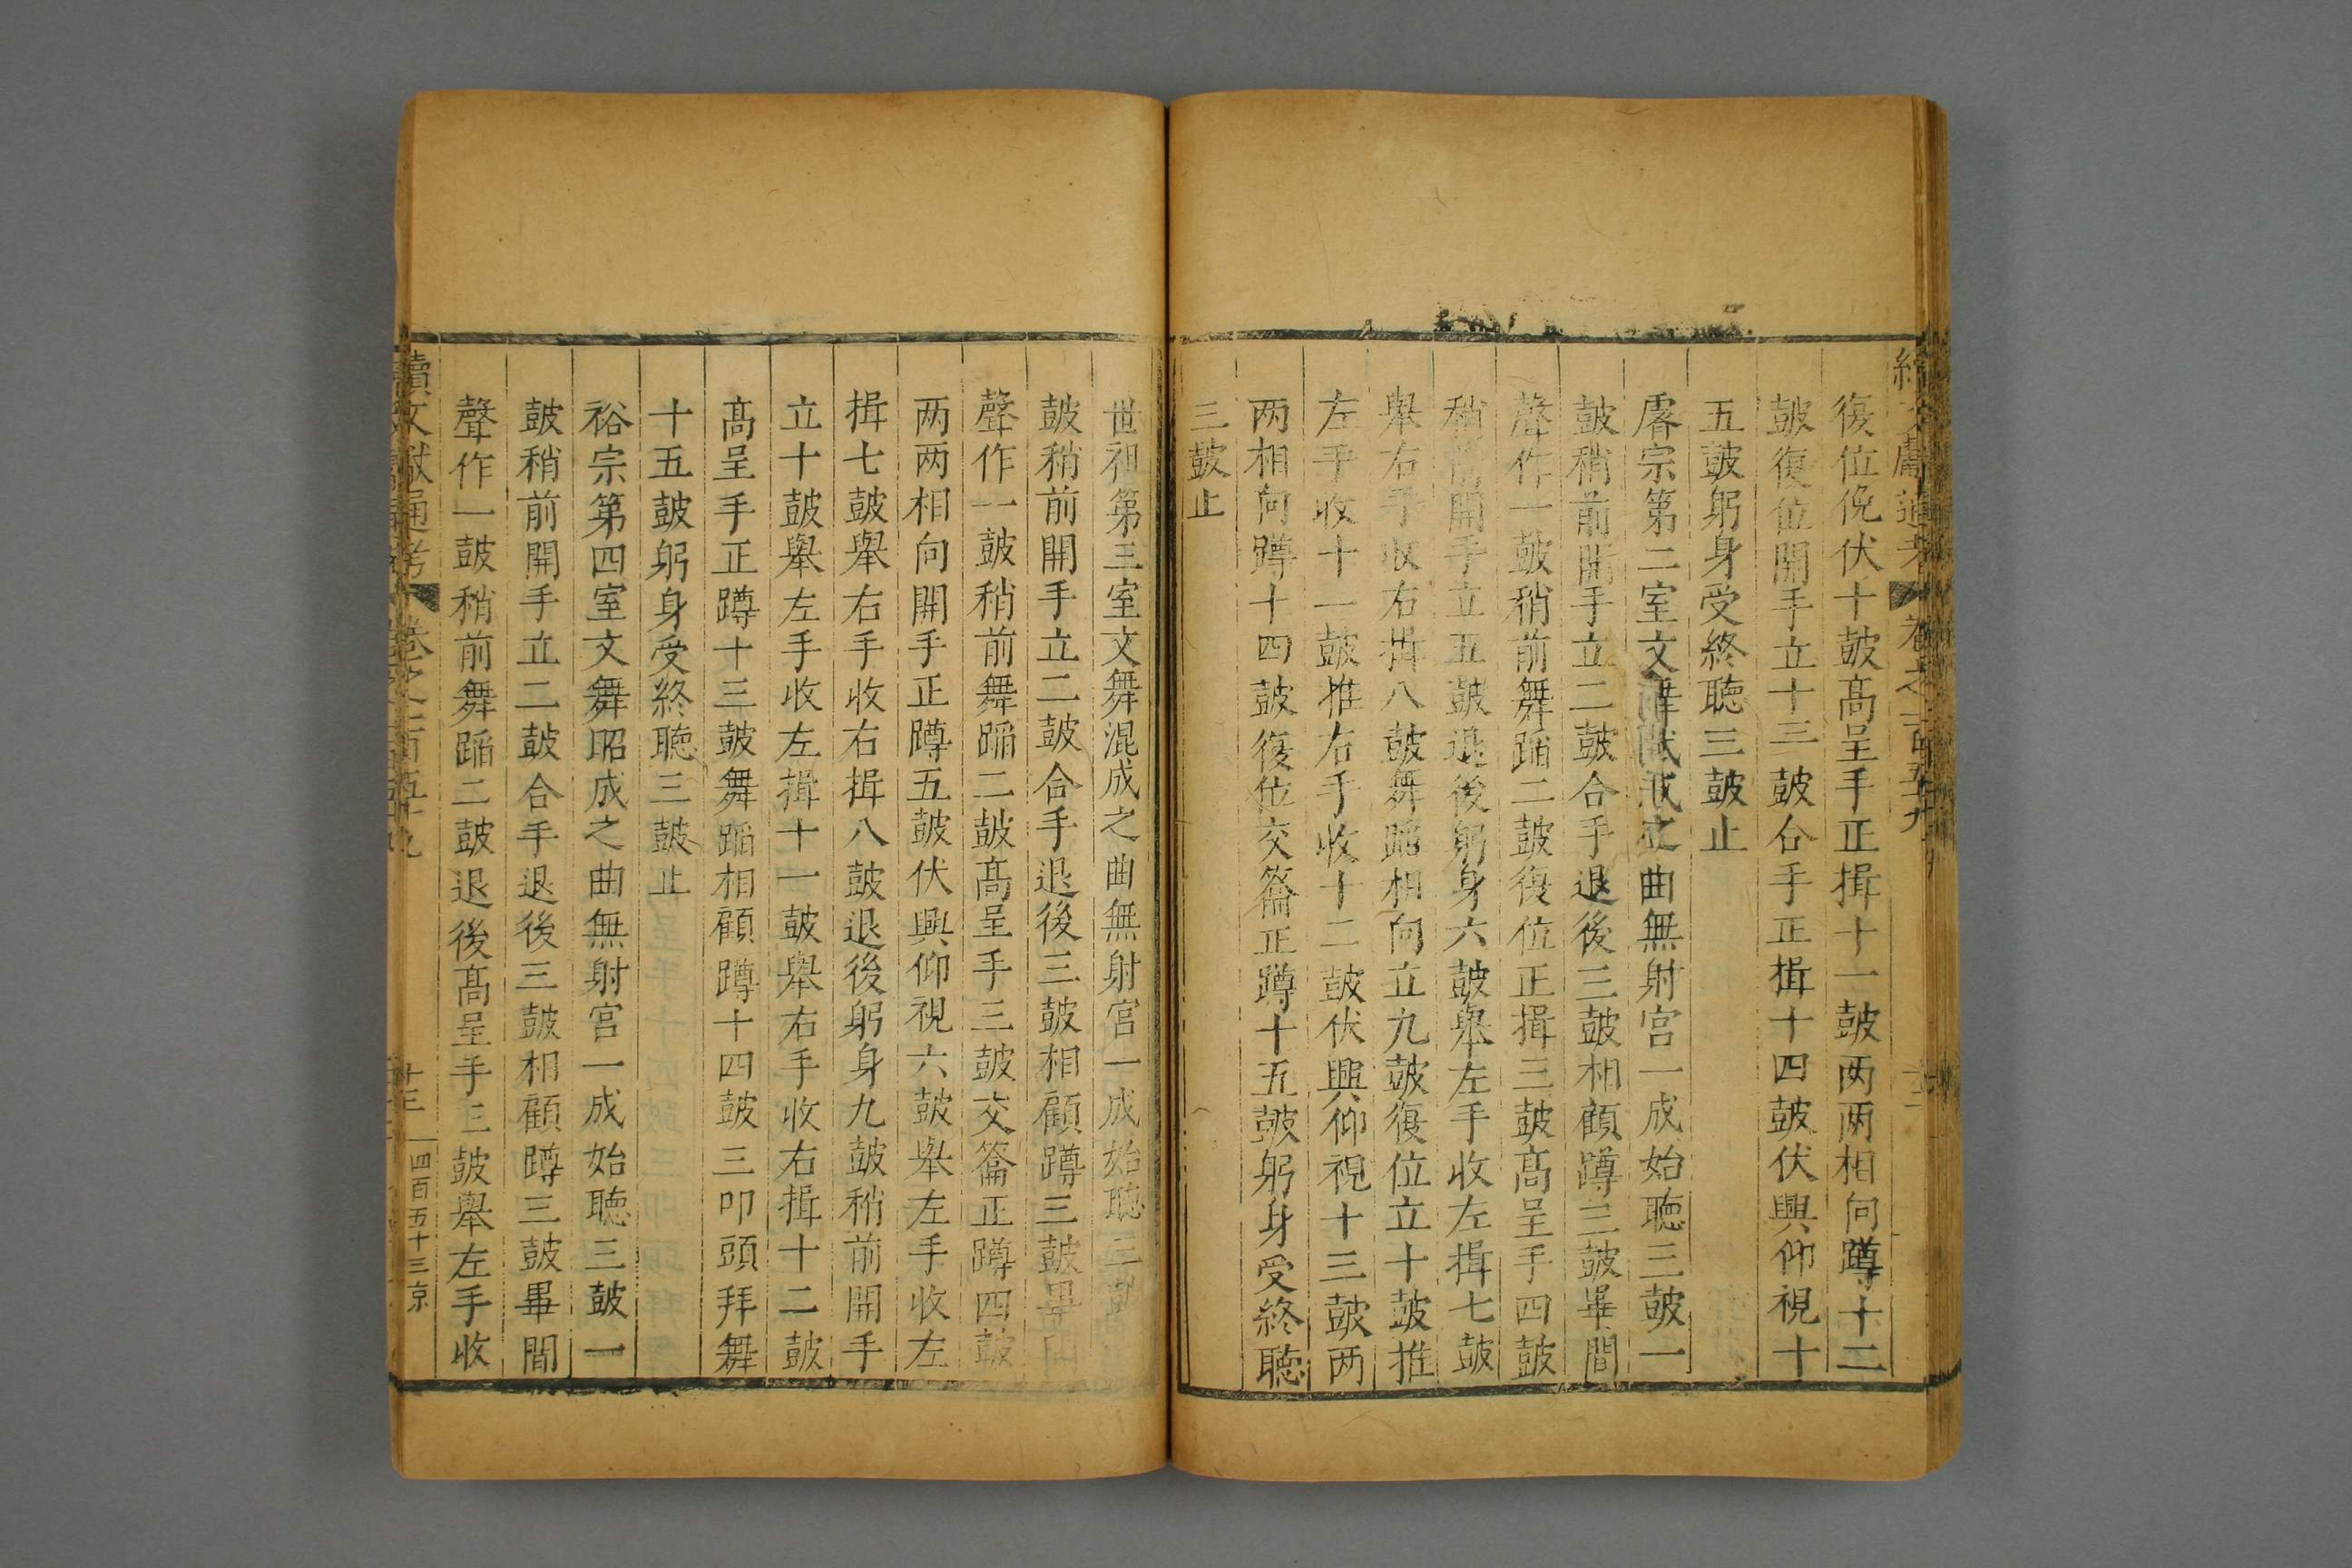 復位俛伏十鼓髙呈手正揖十一鼓两两相向蹲十二
鼓復位開手立十三鼓合手正揖十四鼓伏興仰視十
五鼓躬身受終聽三鼓止
睿宗第二室文舞之曲無射宫一成始聽三鼓一
鼓稍前開手立二鼓合手退後三鼓相顧蹲三鼓畢間
聲作一鼓稍前舞蹈二鼓復位正揖三鼓髙呈手四鼓
稍前開手立五鼓退後躬身六鼓舉左手收左揖七鼓
舉右手收右揖八鼓舞蹈相向立九鼓復位立十鼓推
左手收十一鼓推右手收十二鼓伏興仰視十三鼓两
两相向蹲十四鼓復位交籥正蹲十五鼓躬身受終聽
三鼓止
世祖第三室文舞混成之曲無射宫一成始聽三鼓
鼓稍前開手立二鼓合手退後三鼓相顧蹲三鼓畢間
聲作一鼓稍前舞蹈二鼓髙呈手三鼓交籥正蹲四鼓
两两相向開手正蹲五鼓伏興仰視六鼓舉左手收左
揖七鼓舉右手收右揖八鼓退後躬身九鼓稍前開手
立十鼓舉左手收左揖十一鼓舉右手收右揖十二鼓
髙呈手正蹲十三鼓舞蹈相顧蹲十四鼓三叩頭拜舞
十五鼓躬身受終聽三鼓止
裕宗第四室文舞昭成之曲無射宫一成始聽三鼓一
鼓稍前開手立二鼓合手退後三鼓相顧蹲三鼓畢間
聲作一鼓稍前舞蹈二鼓退後髙呈手三鼓舉左手收
續文獻通考 卷之一百五十九 十三 四百五十三京